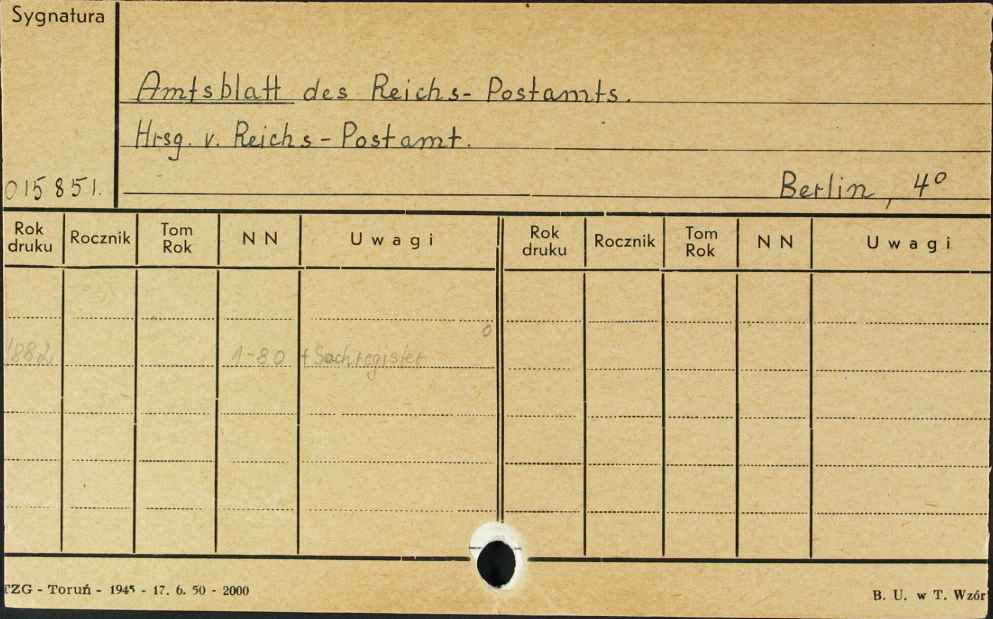 Sygnatura
Amtsblatt des Reichs-Postamts.
Hrsg. v. Reichs-Postamt.
015851.
Berlin, 4°
Rok druku Rocznik Tom Rok NN Uwagi Rok druku Rocznik Tom Rok NN Uwagi
1882 1-80 + Sachregister
TZG - Toruń - 1945 - 17. 6. 50 - 2000
B. U. w T. Wzór